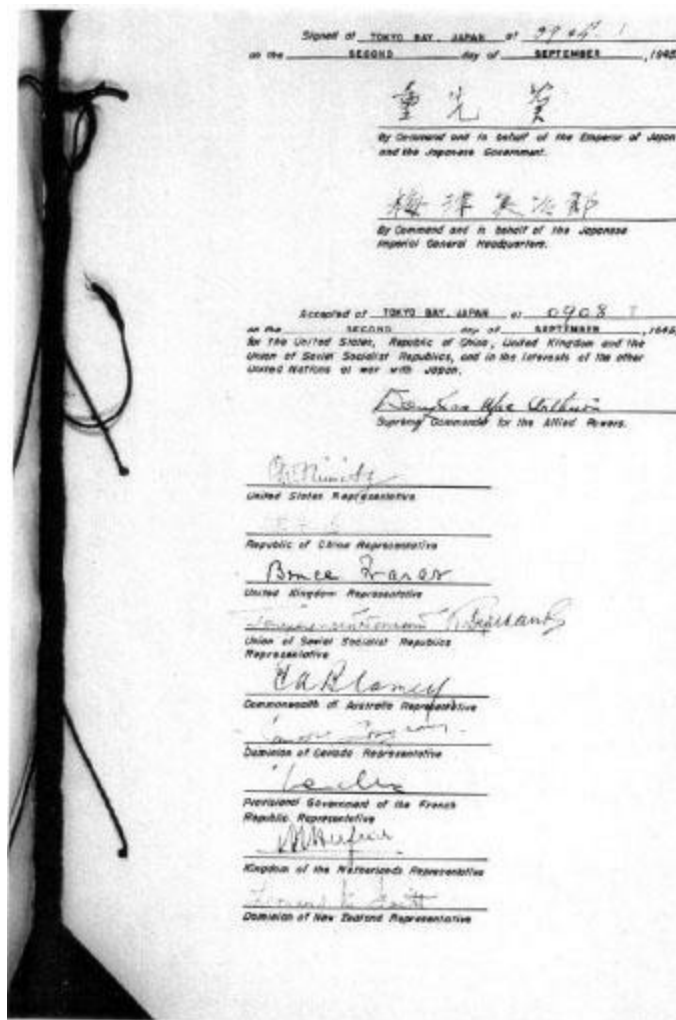 Signed at TOKYO BAY, JAPAN at
on the SECOND day of SEPTEMBER, 1945
重光葵
By Command and in behalf of the Emperor of Japan
and the Japanese Government.
梅津美治郎
By Command and in behalf of the Japanese
Imperial General Headquarters.
Accepted at TOKYO BAY, JAPAN at 0908 I
on the SECOND day of SEPTEMBER, 1945,
for the United States, Republic of China, United Kingdom and the
Union of Soviet Socialist Republics, and in the interests of the other
United Nations at war with Japan.
Douglas MacArthur
Supreme Commander for the Allied Powers.
C.W. Nimitz
United States Representative
Republic of China Representative
Bruce Fraser
United Kingdom Representative
Union of Soviet Socialist Republics
Representative
T.A. Blamey
Commonwealth of Australia Representative
Dominion of Canada Representative
Provisional Government of the French
Republic Representative
Kingdom of the Netherlands Representative
Dominion of New Zealand Representative